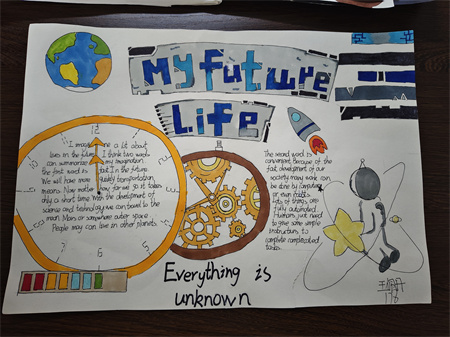 My future
Life
12
I imagine a lot about
lives in the future. I think two words
can summarize my imagination.
the first word is fast. In the future
We will have more highly transportation
No matter how far we go it takes
only a short time. With the development of
science and technology we can travel to the
mars. Mars or somewhere outer space
People may can live in other planets.
6
The second word is
convenient because of the
fast development of our
society many work can
be done by computers
or even robots
lots of things are
fully automated.
Humans just need
to give some simple
instructions to
complete complicated
tasks.
Everything is
unknown